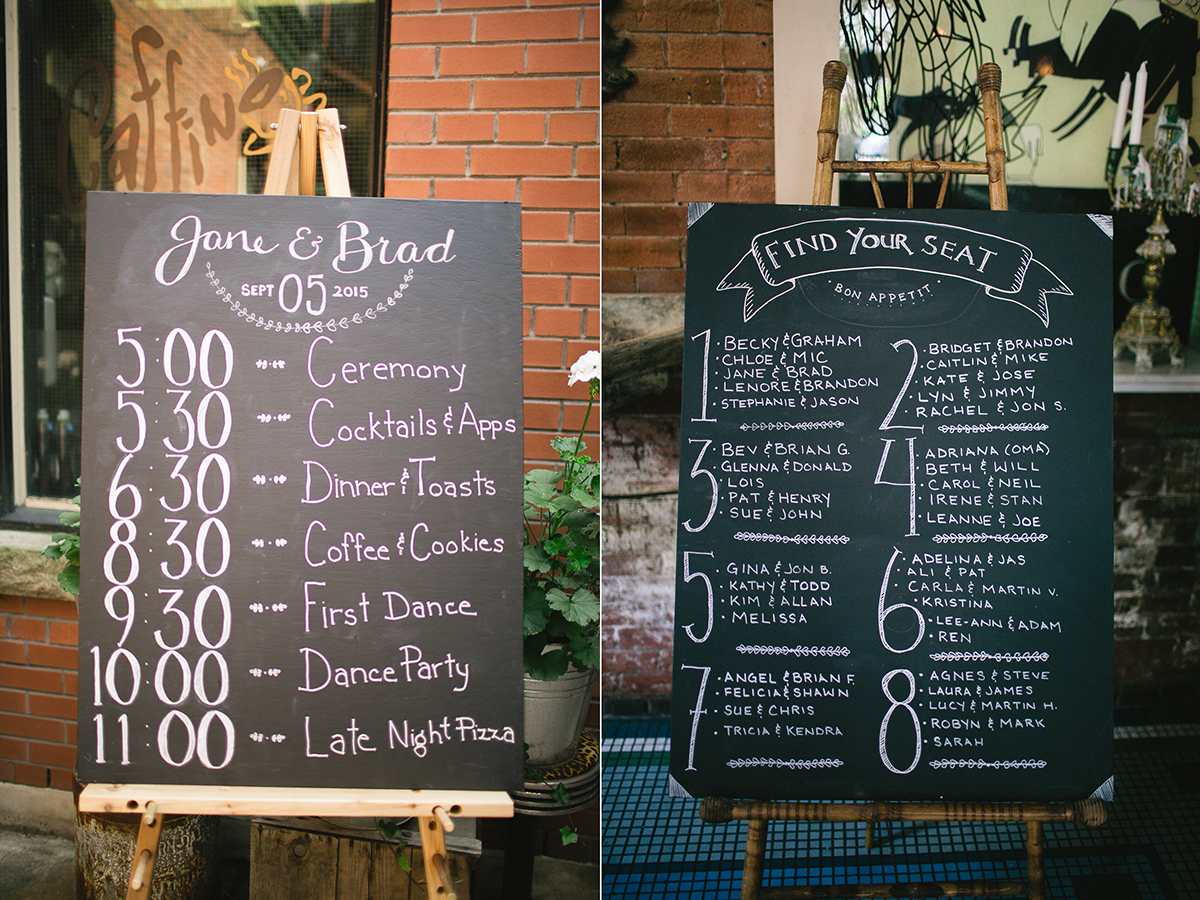 Caffino
Jane & Brad
SEPT 05 2015
5:00 Ceremony
5:30 Cocktails & Apps
6:30 Dinner & Toasts
8:30 Coffee & Cookies
9:30 First Dance
10:00 Dance Party
11:00 Late Night Pizza
FIND YOUR SEAT
· BON APPETIT ·
1
· BECKY & GRAHAM
· CHLOE & MIC
· JANE & BRAD
· LENORE & BRANDON
· STEPHANIE & JASON
2
· BRIDGET & BRANDON
· CAITLIN & MIKE
· KATE & JOSE
· LYN & JIMMY
· RACHEL & JON S.
3
· BEV & BRIAN G.
· GLENNA & DONALD
· LOIS
· PAT & HENRY
· SUE & JOHN
4
· ADRIANA (OMA)
· BETH & WILL
· CAROL & NEIL
· IRENE & STAN
· LEANNE & JOE
5
· GINA & JON B.
· KATHY & TODD
· KIM & ALLAN
· MELISSA
6
· ADELINA & JAS
· ALI & PAT
· CARLA & MARTIN V.
· KRISTINA
· LEE-ANN & ADAM
· REN
7
· ANGEL & BRIAN F.
· FELICIA & SHAWN
· SUE & CHRIS
· TRICIA & KENDRA
8
· AGNES & STEVE
· LAURA & JAMES
· LUCY & MARTIN H.
· ROBYN & MARK
· SARAH